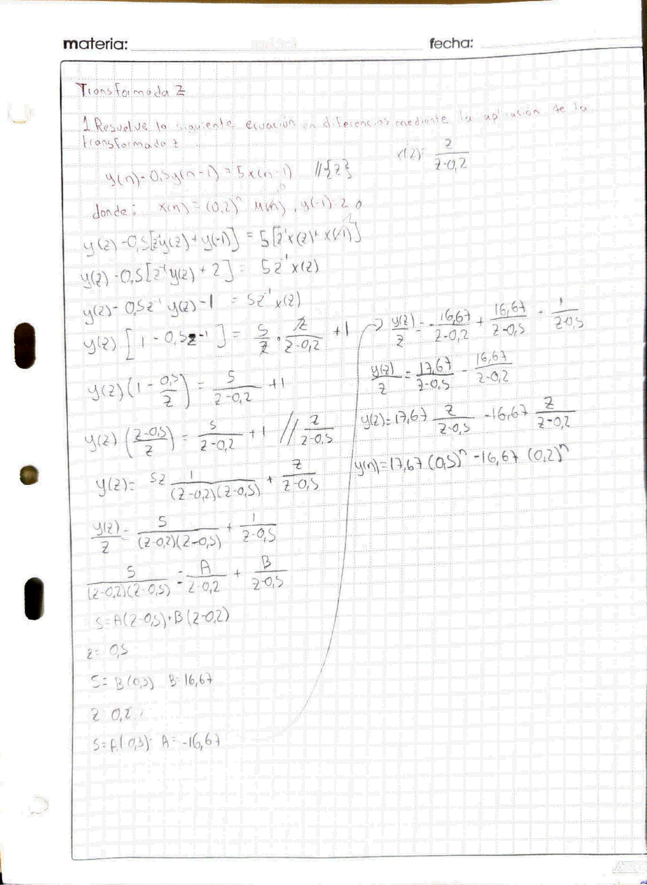 materia:
fecha:
Transformada Z
1. Resuelve la siguiente ecuación en diferencias mediante la aplicación de la
transformada z
y(n)-0,5y(n-1) = 5x(n-1) //{z}
x(z): z/(z-0,2)
donde: x(n) = (0,2)^n u(n), y(-1)=2
y(z)-0,5[z^-1 y(z) + y(-1)] = 5[z^-1 x(z) + x(-1)]
y(z)-0,5[z^-1 y(z) + 2] = 5z^-1 x(z)
y(z)-0,5z^-1 y(z)-1 = 5z^-1 x(z)
y(z)[1-0,5z^-1] = 5/z · z/(z-0,2) + 1
y(z)(1-0,5/z) = 5/(z-0,2) + 1
y(z)((z-0,5)/z) = 5/(z-0,2) + 1 // z/(z-0,5)
y(z) = 5z 1/((z-0,2)(z-0,5)) + z/(z-0,5)
y(z)/z = 5/((z-0,2)(z-0,5)) + 1/(z-0,5)
5/((z-0,2)(z-0,5)) = A/(z-0,2) + B/(z-0,5)
5=A(z-0,5)+B(z-0,2)
z=0,5
5=B(0,3) B=16,67
z=0,2
5=A(-0,3) A=-16,67
→ y(z)/z = -16,67/(z-0,2) + 16,67/(z-0,5) + 1/(z-0,5)
y(z)/z = 17,67/(z-0,5) - 16,67/(z-0,2)
y(z)=17,67 z/(z-0,5) - 16,67 z/(z-0,2)
y(n)=17,67 (0,5)^n - 16,67 (0,2)^n